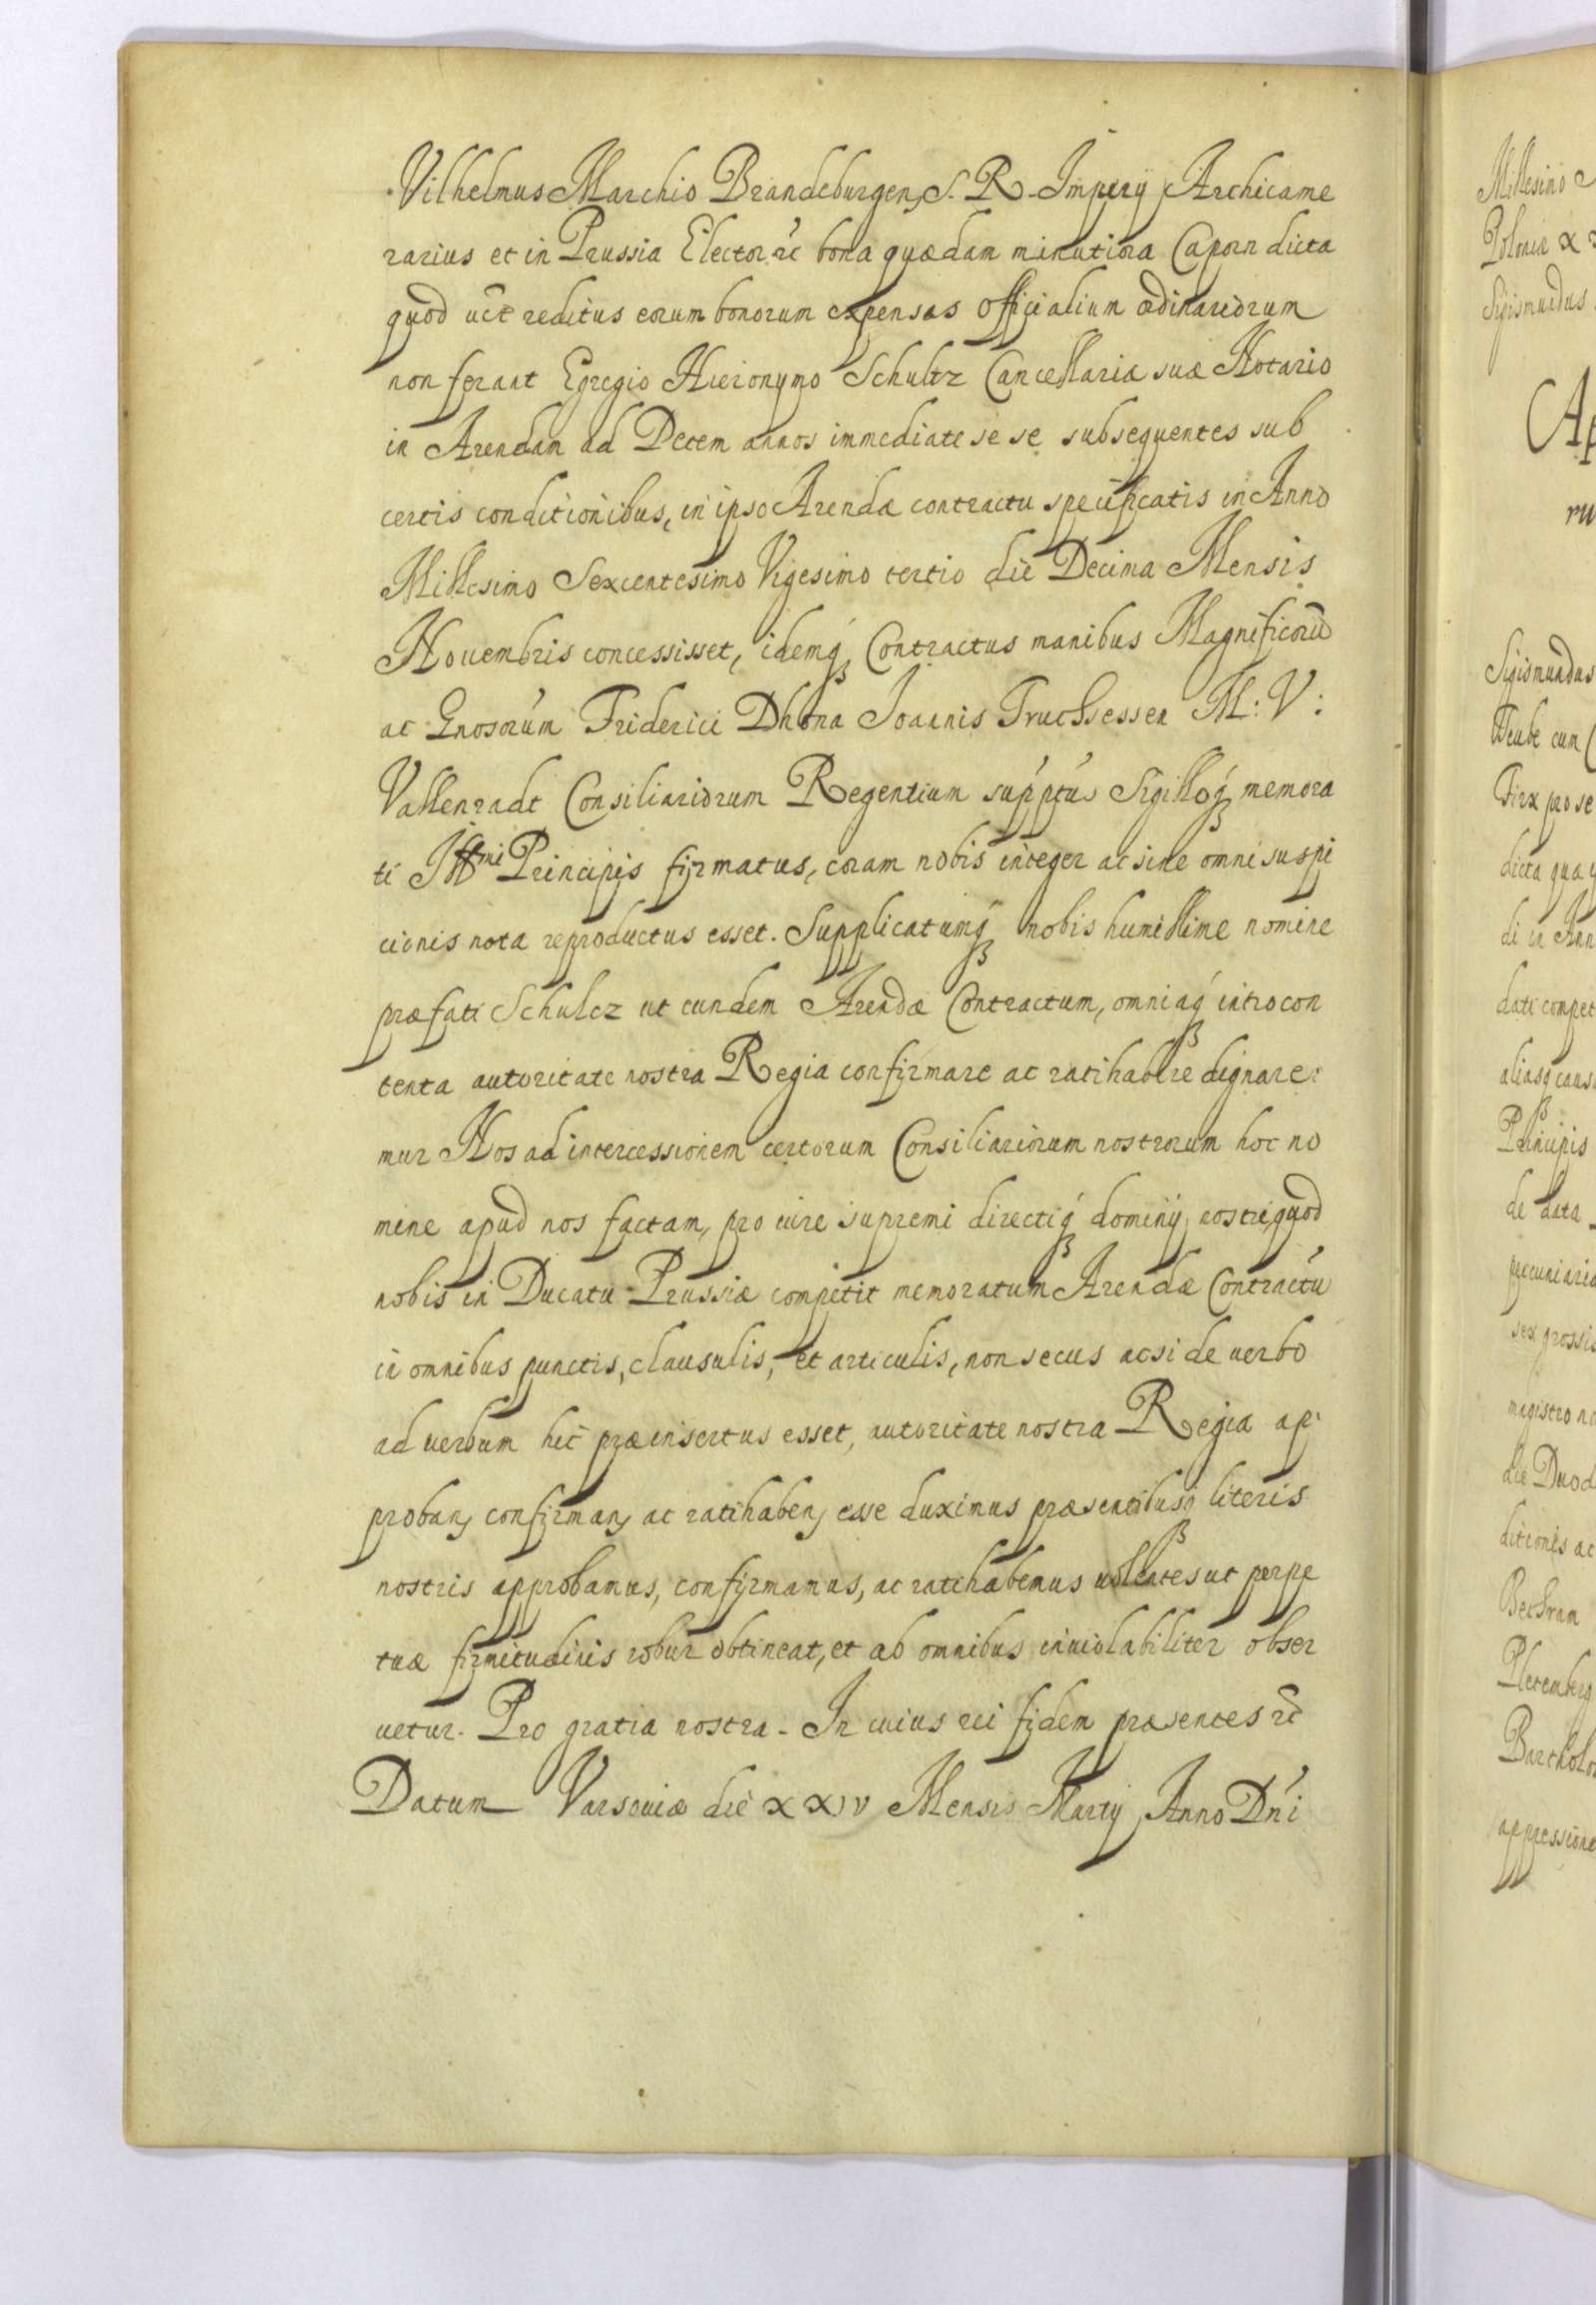 Vilhelmus Marchio Brandeburgen, S. R. Impery Archicame
rarius et in Prussia Elector &c bona quædam minutiora Caporn dicta
quod uct reditus eorum bonorum expensas Officialium ordinariorum
non ferant Egregio Hieronymo Schultz Cancellariæ suæ Notario
in Arendam ad Decem annos immediate se se subsequentes sub
certis conditionibus, in ipso Arendæ contractu specificatis in Anno
Millesimo Sexcentesimo Vigesimo tertio die Decima Mensis
Nouembris concessisset, idemq́ Contractus manibus Magnificorū
ac Gnosorúm Friderici Dhona Joannis Truchsessen M: V:
Vallenradt Consiliariorum Regentium súpptús Sigilloq́ memora
ti Illmi Principis firmatus, coram nobis integer ac sine omni suspi
cionis nota reproductus esset. Supplicatumq́ nobis humillime nomine
præfati Schulcz ut eundem Arendæ Contractum, omniaq́ introcon
tenta autoritate nostra Regia confirmare ac ratihabere dignare:
mur Nos ad intercessionem certorum Consiliariorum nostrorum hoc no
mine apud nos factam, pro iure supremi directiq́ dominij nostri, quod
nobis in Ducatu Prussiæ competit memoratum Arendæ Contractū
in omnibus punctis, clausulis, et articulis, non secus acsi de uerbo
ad uerbum hic præinsertus esset, autoritate nostra Regia ap:
proban, confirman, ac ratihaben, esse duximus præsentibusq́ literis
nostris approbamus, confirmamus, ac ratihabemus uolentes ut perpe
tuæ firmitudinis robur obtineat, et ab omnibus inuiolabiliter obser
uetur. Pro gratia nostra. In cuius rei fidem præsentes &c
Datum Varsouiæ die XXIV Mensis Marty Anno Dńi
Millesimo
Poloniæ
Sigismundus
Ap
ru
Sigismundus
cum
Firx pro se
dicta qua
di in Ann
dati compet
aliasq́ caus
Principis
de data
pecuniaria
sex grossis
magistro no
die Duod
ditionis ac
Bechran
Pletemberg
Bartholo
appressione